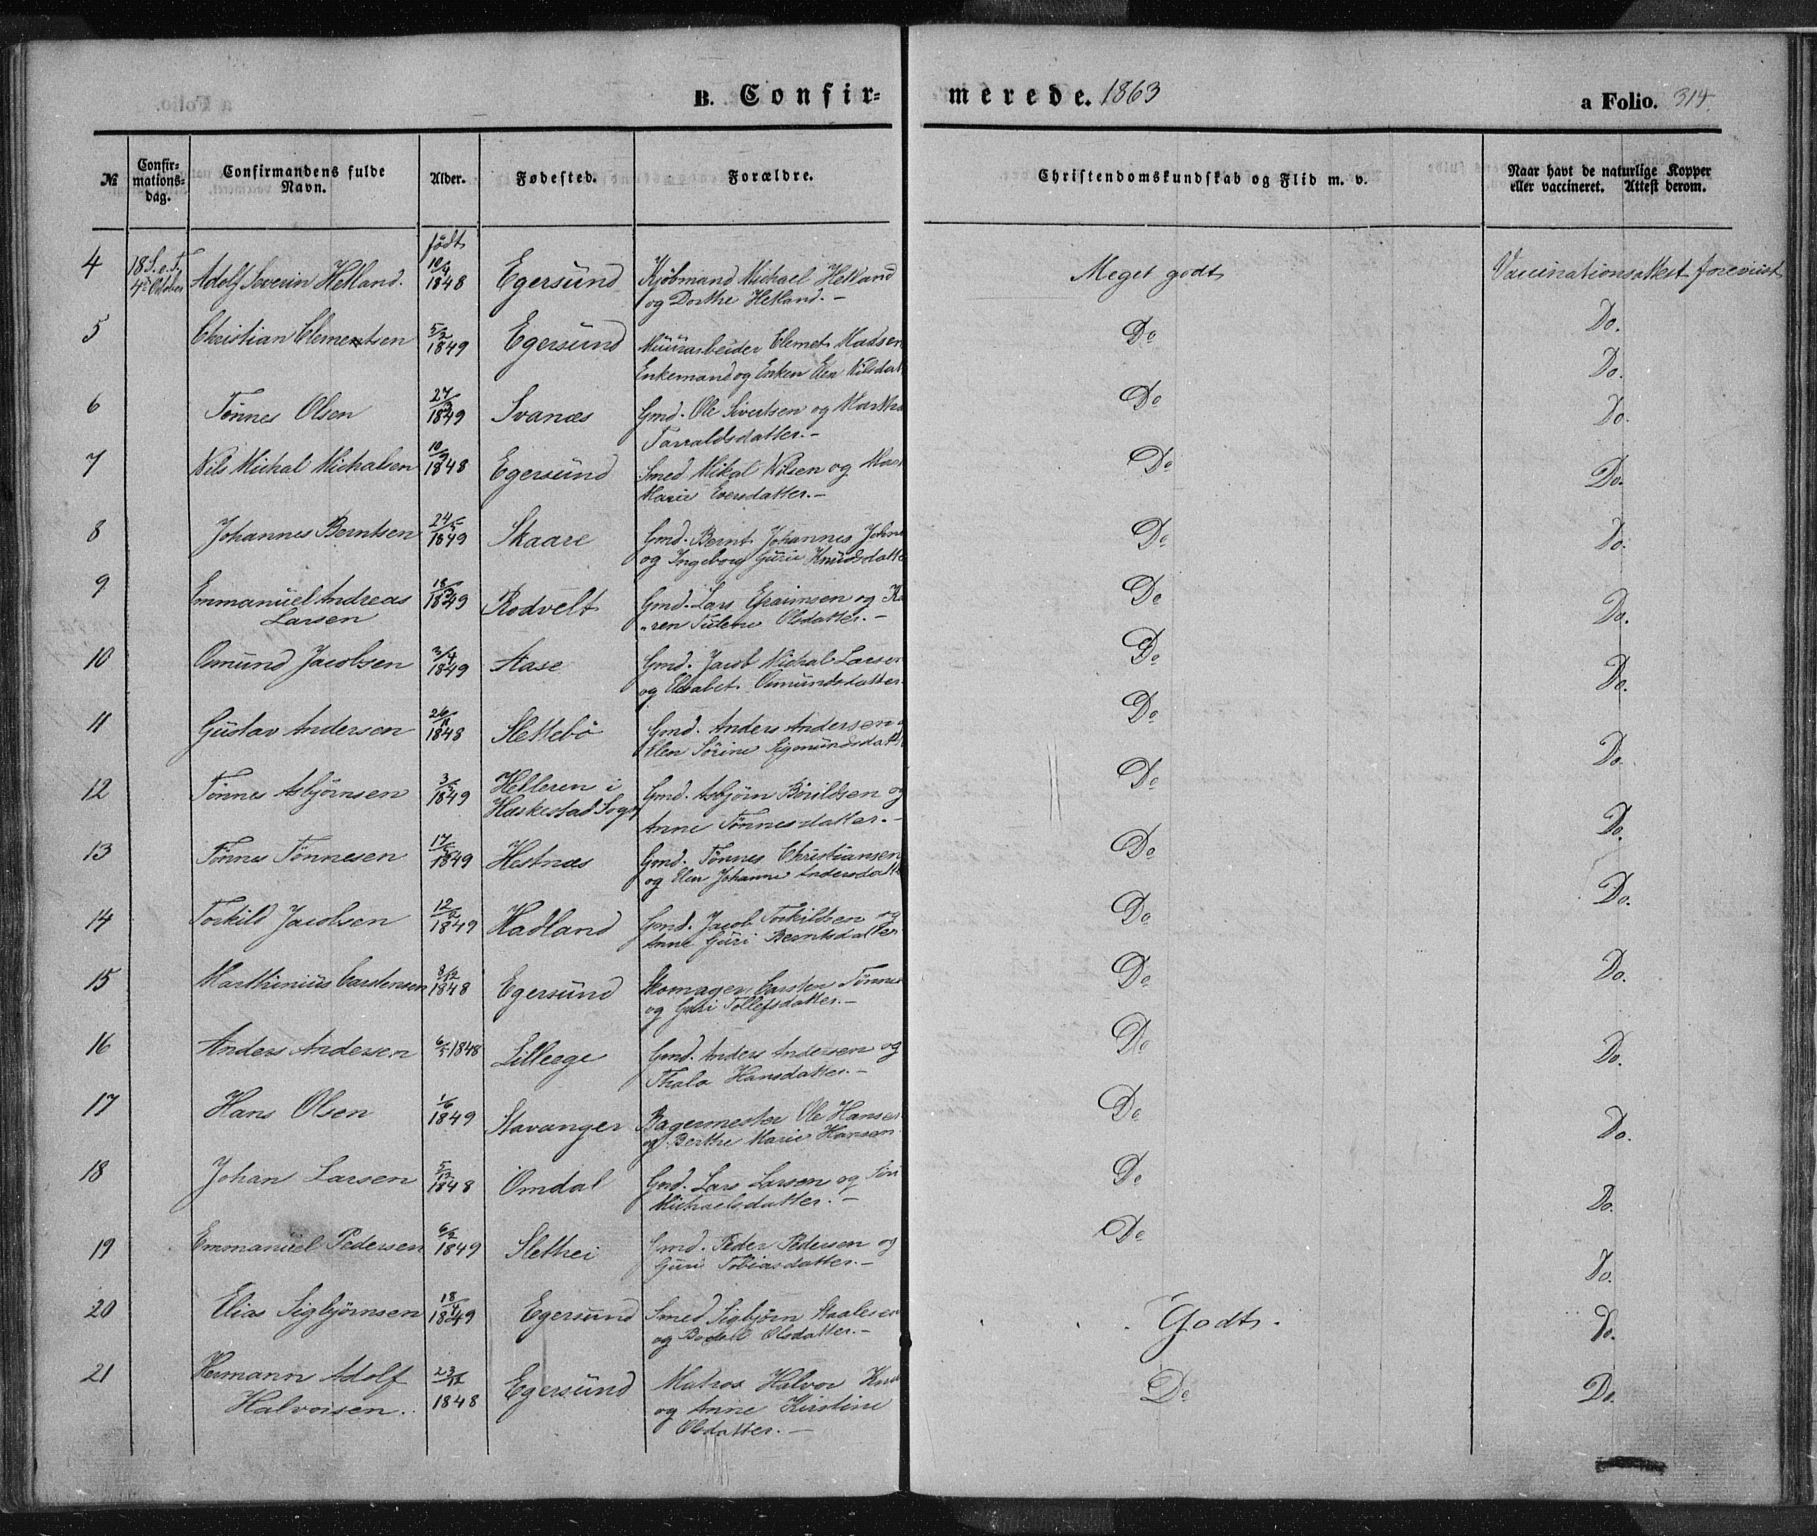 B. Confir-merede. 1863 a Folio. 314.
№ Confir-mations-dag. Confirmandens fulde Navn. Alder. Fødested. Forældre. Christendomskundskab og Flid m. v. Naar havt de naturlige Kopper eller vaccineret. Attest derom.
født
4 18 S. e. T. 4de October Adolf Severin Hetland. 10/9 1848 Egersund Kjøbmand Michael Hetland og Dorthe Hetland.- Meget godt Vaccinationsattest forevist
5 Christian Clementsen 5/2 1849 Egersund Muurarbeider Clemet Madsen Enkemand og Enken Elen Nilsdat Do Do.
Do.
6 Tønnes Olsen 27/3 1849 Svanæs Gmd. Ole Sivertsen og Martha Tarraldsdatter.- Do Do.
7 Nils Michal Michalsen 10/9 1848 Egersund Smed Mikal Nilsen og Marie Eversdatter.- Do Do.
8 Johannes Berntsen 24/5 1849 Skaare Gmd. Bernt Johannes Johne og Ingeborg Gurie Knudsdatte Do Do.
9 Emmanuel Andreas Larsen 18/5 1849 Rodvelt Gmd. Lars Epraimsen og Ka„ren Tulene Olsdatter.- Do Do.
10 Omund Jacobsen 3/4 1849 Aase Gmd. Jacob Michal Larsen og Elisabet Omundsdatter Do Do.
11 Gustav Andersen 26/11 1848 Slettebø Gmd. Anders Andersen Elen Sørine Sigmundsdatt Do Do.
12 Tønnes Asbjørnsen 3/5 1849 Helleren i Heskestad Sogn Gmd. Asbjørn Børildsen og Anne Tønnesdatter.- Do Do.
13 Tønnes Tønnesen 17/5 1849 Hestnæs Gmd. Tønnes Christiansen og Elen Johanne Andersdatte Do Do.
14 Torkild Jacobsen 12/2 1849 Hadland Gmd. Jacob Torkildsen og Anne Guri Berntsdatter Do Do.
15 Marthinius Carstensen 3/12 1848 Egersund Skomager Carsten Tønnes og Guri Tollefsdatter.- Do Do.
16 Anders Andersen 6/5 1848 Lilleege Gmd. Anders Andersen og Thala Hansdatter.- Do Do.
17 Hans Olsen 1/6 1849 Stavanger Bagermester Ole Hansen og Berthe Marie Hansen Do Do.
18 Johan Larsen 5/12 1848 Omdal Gmd. Lars Larsen og Siri Michaelsdatter.- Do Do.
19 Emmanuel Pedersen 6/2 1849 Slethei Gmd. Peder Pedersen og Guri Tobiasdatter.- Do Do.
20 Elias Sigbjørnsen 18/4 1849 Egersund Smed Sigbjørn Staalesen og Bodel Olsdatter.- Godt. Do.
21 Hermann Adolf Halvorsen. 23/12 1848 Egersund Matros Halvor Knu og Anne Kirstine Olsdatter.- Do Do.